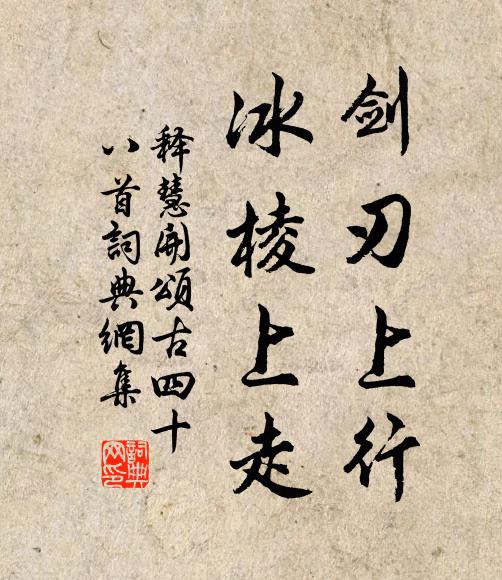 剑刃上行
冰棱上走
释慧開頌古四十
八首詞典網集
詞典
网印